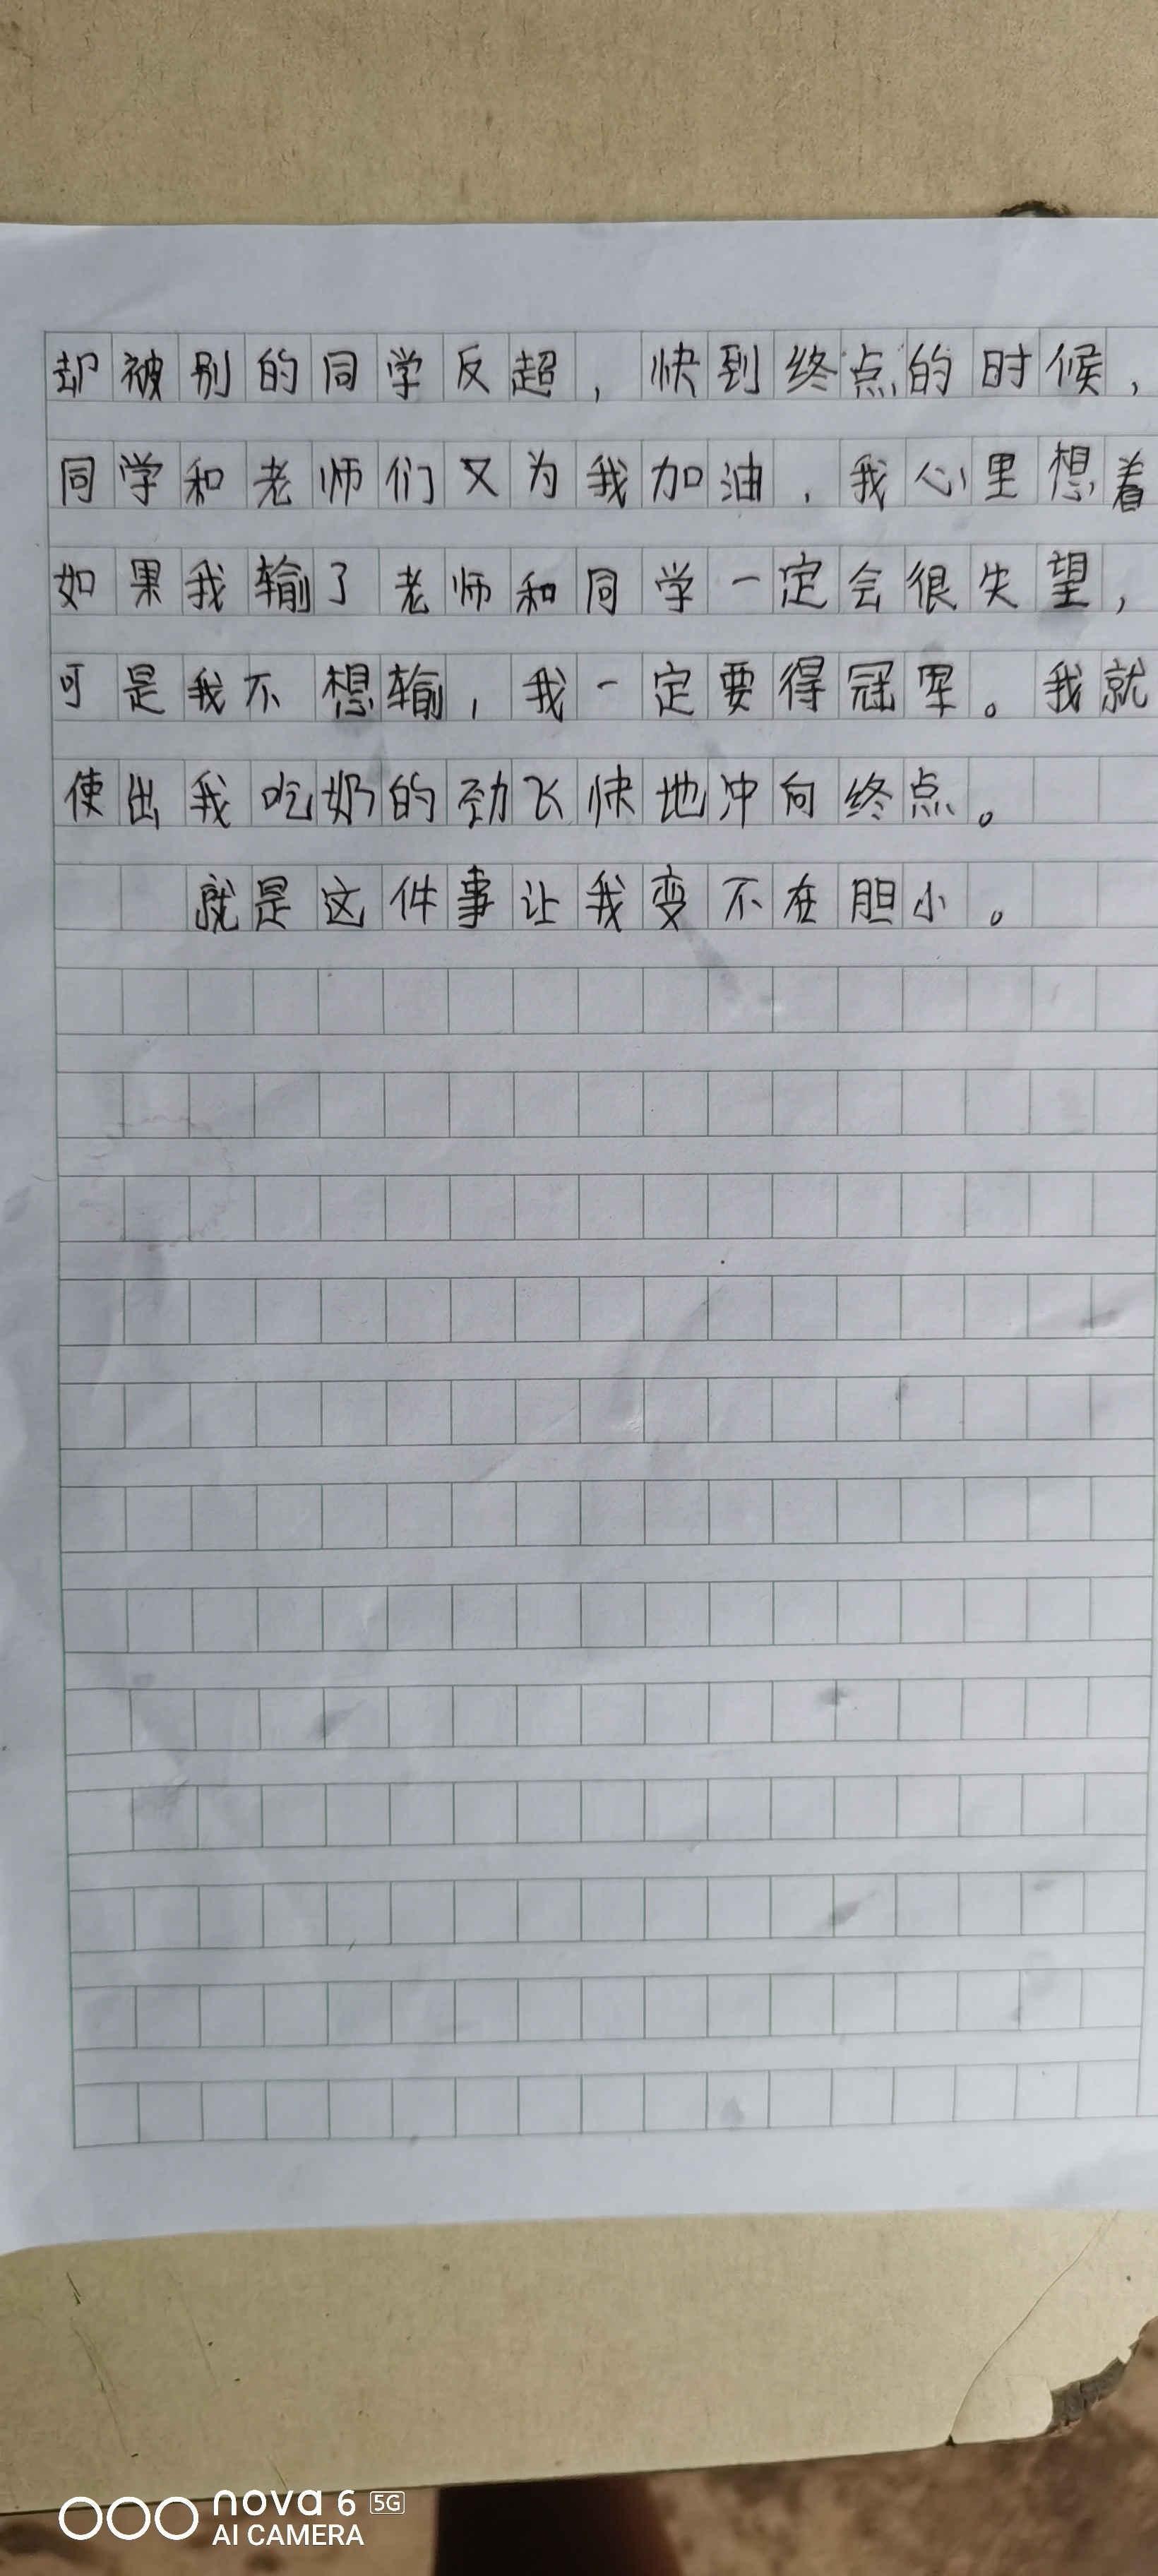 却被别的同学反超，快到终点的时候，
同学和老师们又为我加油，我心里想着
如果我输了老师和同学一定会很失望，
可是我不想输，我一定要得冠军。我就
使出我吃奶的劲飞快地冲向终点。
就是这件事让我变不在胆小。
nova 6 5G
AI CAMERA